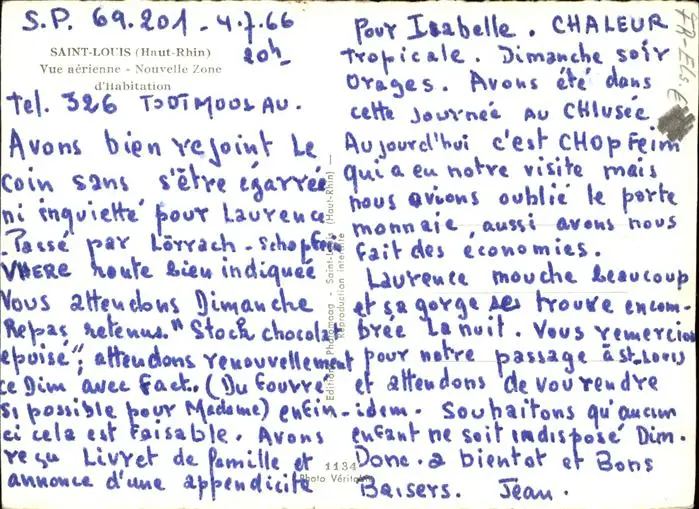 S.P. 69.201 - 4.7.66
20h
SAINT-LOUIS (Haut-Rhin)
Vue aérienne - Nouvelle Zone
d'Habitation
Tel. 326 TODTMOOS AU.
Avons bien rejoint le
coin sans s'être égarrée
ni inquietté pour Laurence
- Passé par Lörrach - Schopfei
VHERE route bien indiquée
Vous attendons Dimanche
Repas retenus " Stock chocolat
epuisé"; attendons renouvellement
ce Dim avec Fact. (Du Fouvre
si possible pour Madame) enfin
ci cela est faisable. Avons
reçu Livret de famille et
annonce d'une appendicite
Pour Isabelle. CHALEUR
tropicale. Dimanche soir
Orages. Avons été dans
cette journée au CHlusée
Aujourd'hui c'est CHOPFeim
qui a eu notre visite mais
nous avions oublié le porte
monnaie aussi avons nous
fait des économies.
Laurence mouche beaucoup
et sa gorge se trouve encom-
brée la nuit. Vous remercions
pour notre passage à St. Louis
et attendons de vou rendre
- idem. Souhaitons qu'aucun
enfant ne soit indisposé Dim.
Donc. a bientot et Bons
Baisers. Jean.
Editions Photomaag - Saint-Louis (Haut-Rhin) -
Reproduction interdite
1134
Photo Véritable
FR-ELS.E